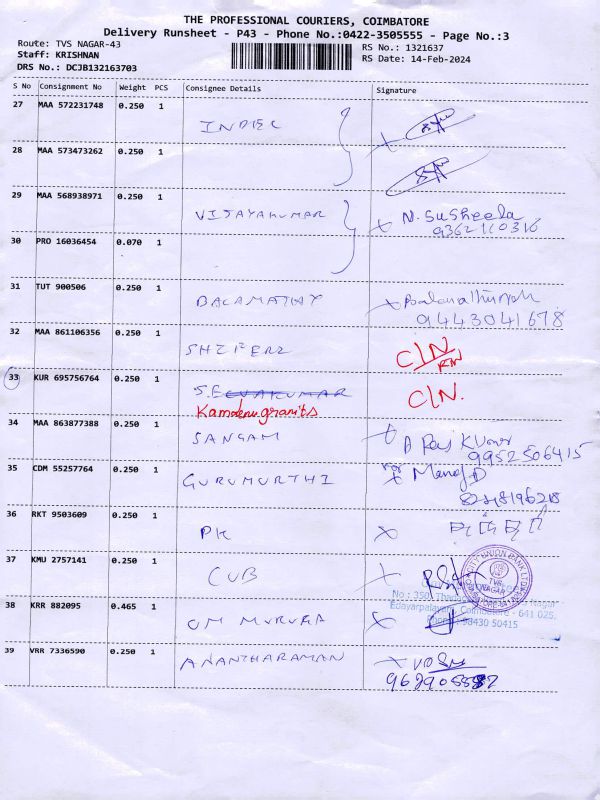 THE PROFESSIONAL COURIERS, COIMBATORE
Delivery Runsheet - P43 - Phone No.:0422-3505555 - Page No.:3
Route: TVS NAGAR-43
Staff: KRISHNAN
DRS No.: DCJB132163703
RS No.: 1321637
RS Date: 14-Feb-2024
S No Consignment No Weight PCS Consignee Details Signature
27 MAA 572231748 0.250 1 INDEC
28 MAA 573473262 0.250 1
29 MAA 568938971 0.250 1 VIJAYAKUMAR N. Susheela
9362110316
30 PRO 16036454 0.070 1
31 TUT 900506 0.250 1 BALAMATHY
9443041678
32 MAA 861106356 0.250 1 C/N
33 KUR 695756764 0.250 1 SELVAKUMAR C/N.
Kamdenu granits
34 MAA 863877388 0.250 1 SANGAM
9952506415
35 CDM 55257764 0.250 1 GURUMURTHI Manoj.D
36 RKT 9503609 0.250 1 PK
37 KMU 2757141 0.250 1 CUB
CITY UNION BANK LTD
TVS NAGAR
No : 350, Nagar
Edayarpalayam, Coimbatore - 641 025.
98430 50415
38 KRR 882095 0.465 1 OM MURUGA
39 VRR 7336590 0.250 1 ANANTHARAMAN